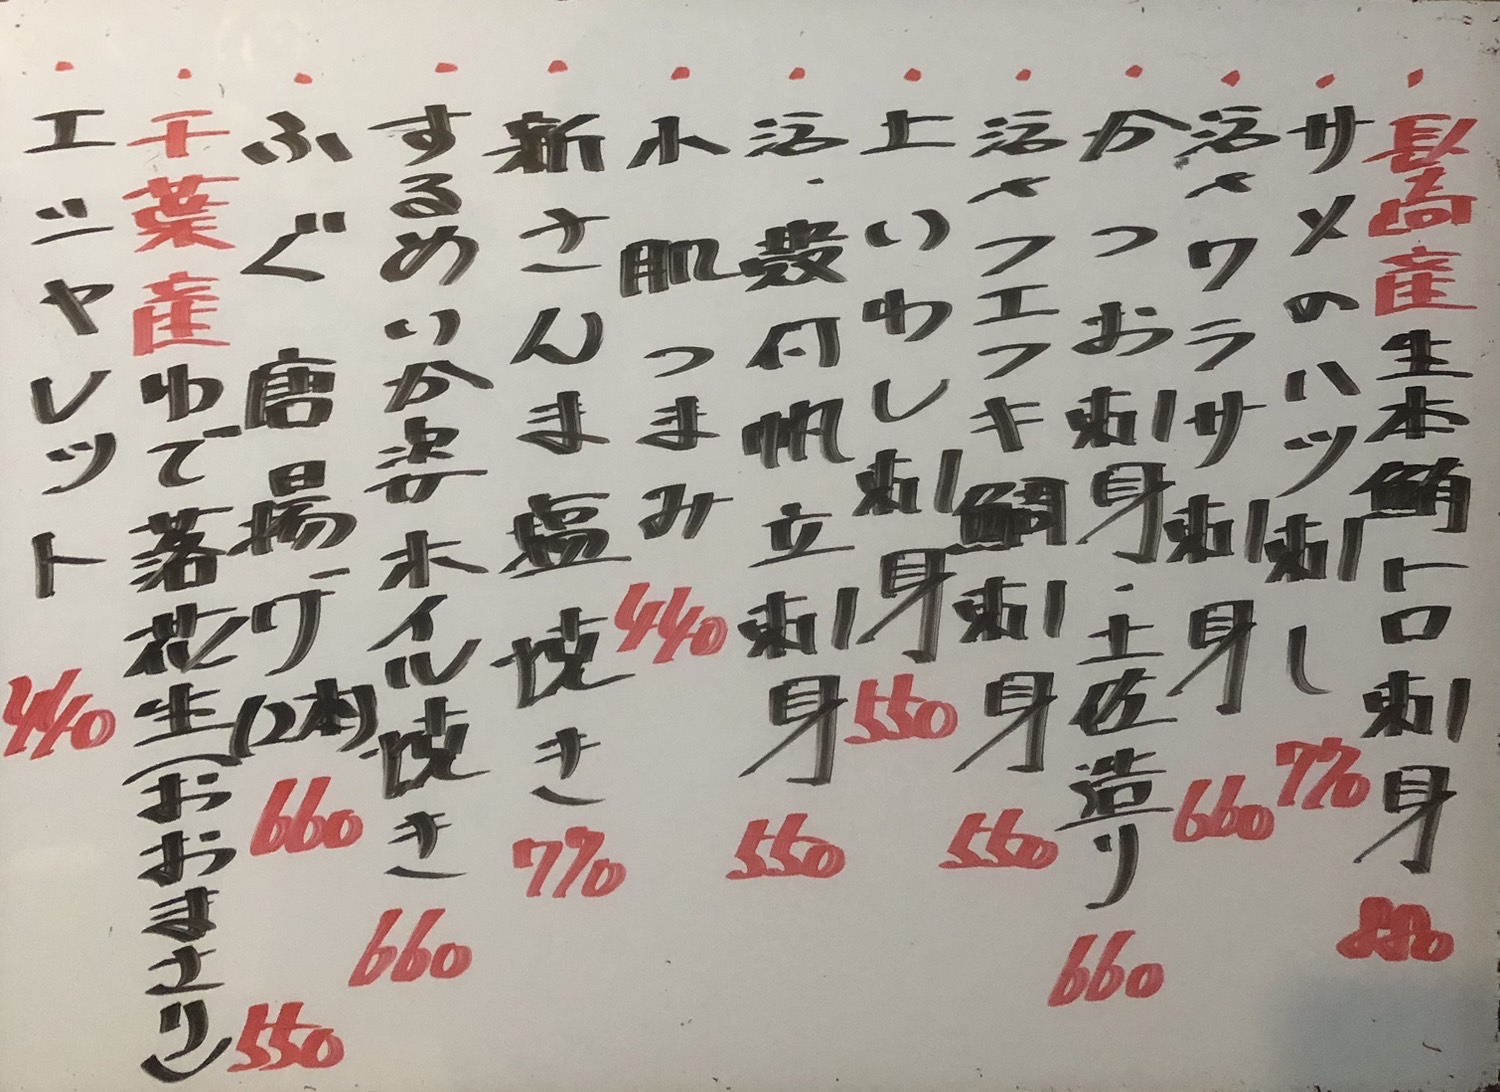 ・長崎産生本鮪トロ刺身 880
・サメのハツ刺し 770
・活〆ワラサ刺身 660
・かつお刺身・土佐造り 660
・活〆フエフキ鯛刺身 550
・上いわし刺身 550
・活・殻付帆立刺身 550
・小肌つまみ 440
・新さんま塩焼き 770
・するめいか姿ホイル焼き 660
・ふぐ唐揚げ(2本) 660
・千葉産ゆで落花生(おおまさり) 550
・エシャレット 440